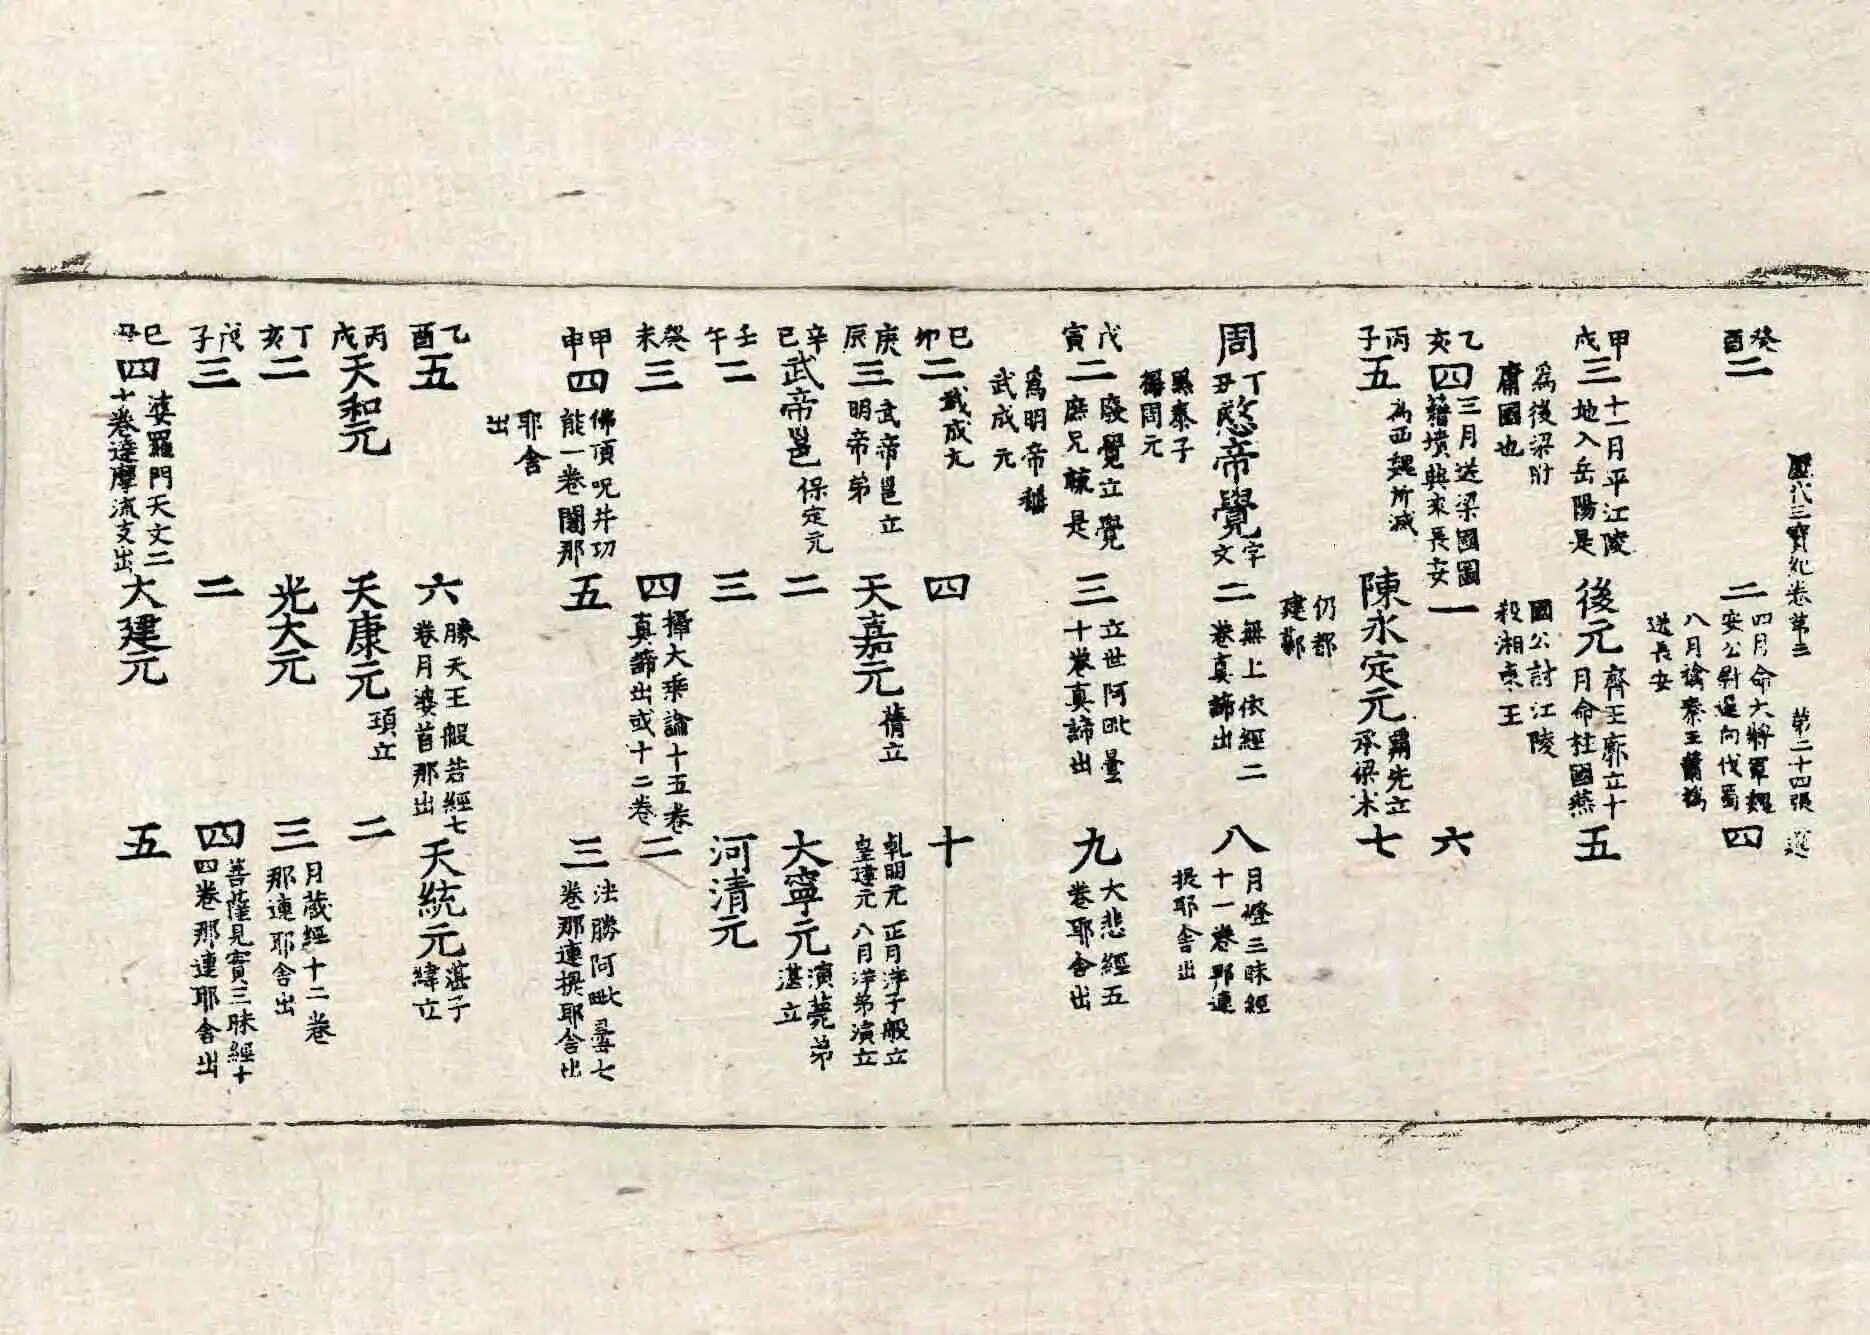 歷代三寶紀卷第三 第二十四張
癸酉二 二四月命大將軍魏安公尉遲迥伐蜀 四
八月擒秦王蕭撝送長安
甲戌三十一月平江陵地入岳陽是 後元齊王廓立十月命柱國燕 五
為後梁附庸國也 國公討江陵殺湘東王
乙亥四三月送梁國圖籍墳典來長安 一 六
丙子五為西魏所滅 陳永定元霸先立承梁末 七
仍都建鄴
周丁丑愍帝覺字文 二無上依經二卷真諦出 八月燈三昧經十一卷那連
黑泰子稱周元 提耶舍出
戊寅二廢覺立覺庶兄毓是 三立世阿毗曇十卷真諦出 九大悲經五卷耶舍出
為明帝稱武成元
己卯二武成元 四 十
庚辰三武帝邕立明帝弟 天嘉元蒨立 乹明元正月洋子般立皇建元八月洋弟演立
辛巳武帝邕保定元 二 大寧元演薨弟湛立
壬午二 三 河清元
癸未三 四攝大乘論十五卷真諦出或十二卷 二
甲申四佛頂呪并功能一卷闍那 五 三法勝阿毗曇七卷那連提耶舍出
耶舍出
乙酉五 六勝天王般若經七卷月婆首那出 天統元湛子緯立
丙戌天和元 天康元頊立 二
丁亥二 光大元 三月藏經十二卷那連耶舍出
戊子三 二 四菩薩見實三昧經十四卷那連耶舍出
己丑四婆羅門天文二十卷達摩流支出 大建元 五